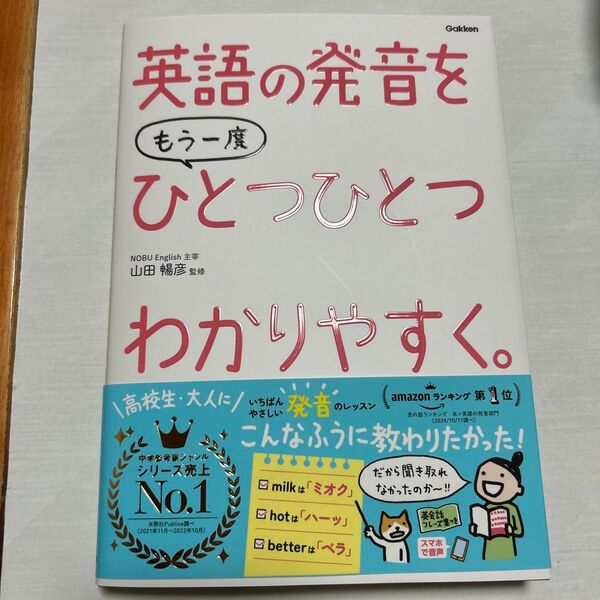 Gakken
英語の発音を
もう一度
ひとつひとつ
NOBU English 主宰
山田 暢彦 監修
わかりやすく。
高校生・大人に
いちばん
やさしい
発音のレッスン
amazon ランキング 第1位
売れ筋ランキング 本>英語の発音部門
(2024/10/11調べ)
こんなふうに教わりたかった!
中学参考書ジャンル
シリーズ売上
No.1
※弊社Publine調べ
(2021年11月〜2022年10月)
milkは「ミオク」
hotは「ハーッ」
betterは「ベラ」
だから聞き取れ
なかったのか〜!!
英会話
フレーズ集つき
スマホ
で音声